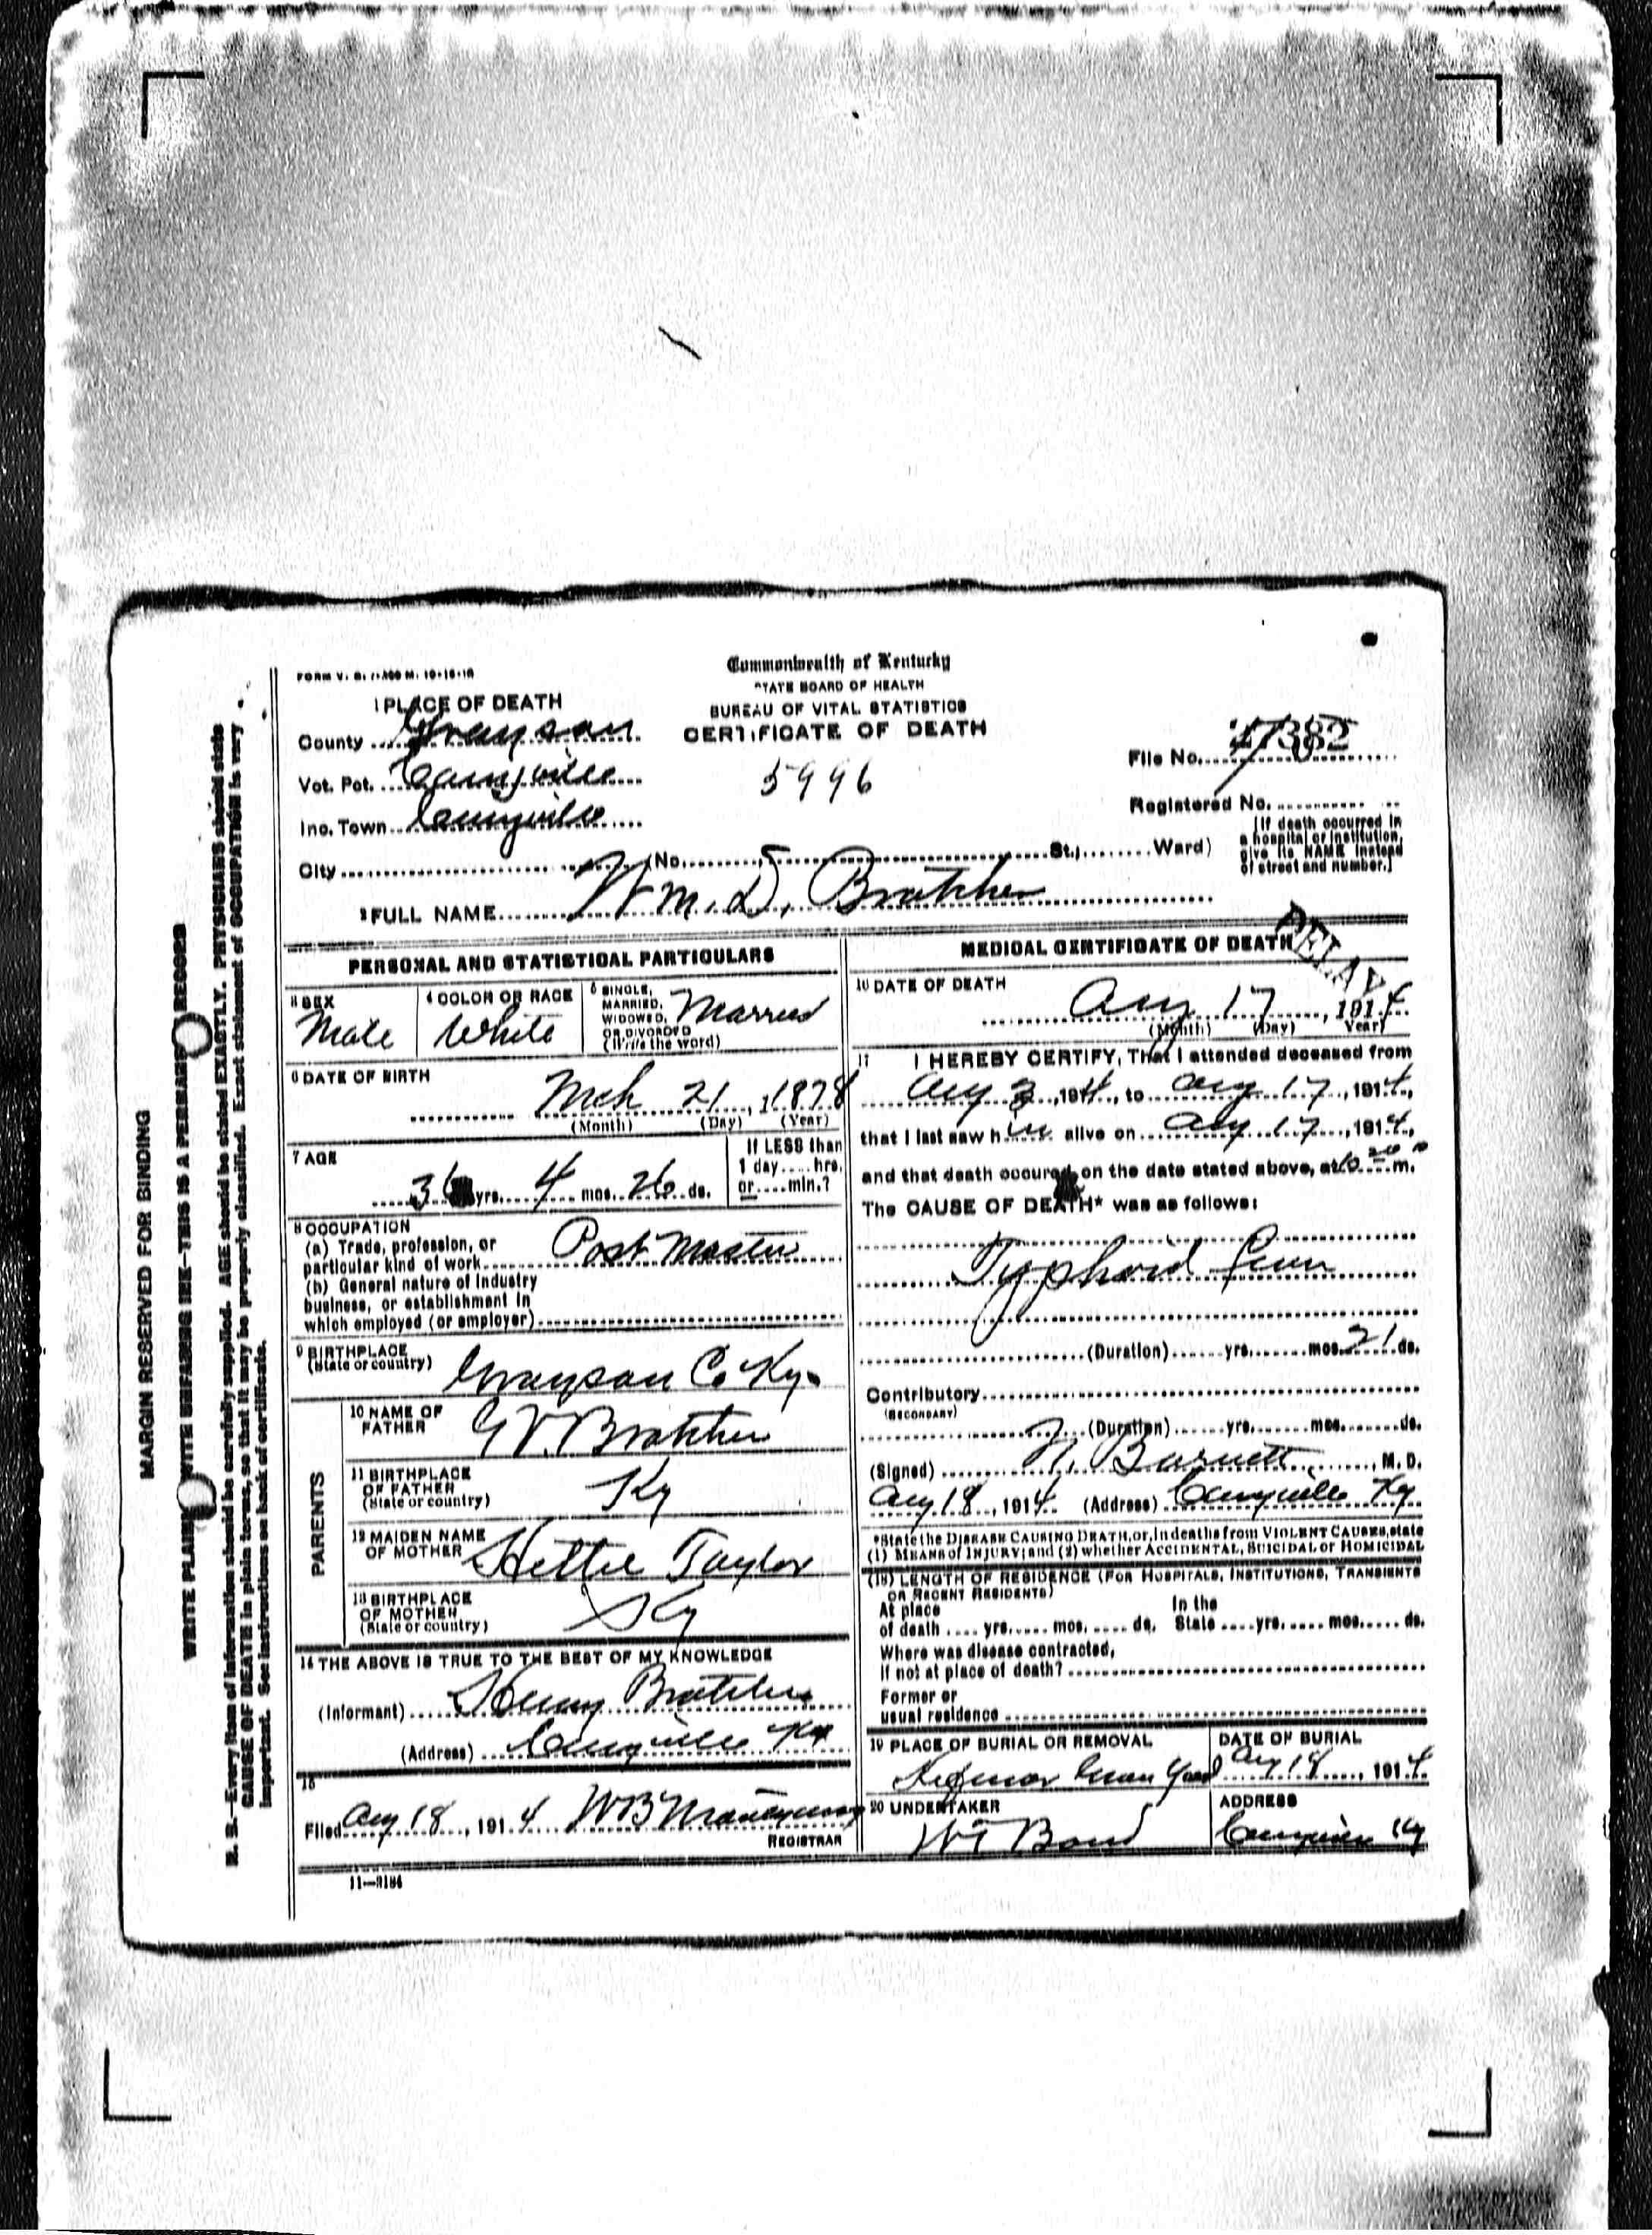 FORM V. S.
Commonwealth of Kentucky
STATE BOARD OF HEALTH
BUREAU OF VITAL STATISTICS
CERTIFICATE OF DEATH
1 PLACE OF DEATH
County Grayson
Vot. Pct. Caneyville
Inc. Town Caneyville
City
5996
File No.
Registered No.
(No. St.; Ward)
[If death occurred in
a hospital or institution,
give its NAME instead
of street and number.]
2 FULL NAME Wm. D. Bratcher
DELAY
PERSONAL AND STATISTICAL PARTICULARS
3 SEX
Male
4 COLOR OR RACE
White
5 SINGLE,
MARRIED,
WIDOWED,
OR DIVORCED
(Write the word)
Married
6 DATE OF BIRTH
Mch 21, 1878
(Month) (Day) (Year)
7 AGE
36 yrs. 4 mos. 26 ds.
If LESS than
1 day.....hrs.
or.....min.?
8 OCCUPATION
(a) Trade, profession, or
particular kind of work Post Master
(b) General nature of industry
business, or establishment in
which employed (or employer)
9 BIRTHPLACE
(State or country) Grayson Co Ky.
PARENTS
10 NAME OF
FATHER G V. Bratcher
11 BIRTHPLACE
OF FATHER
(State or country) Ky
12 MAIDEN NAME
OF MOTHER Hettie Taylor
13 BIRTHPLACE
OF MOTHER
(State or country) Ky
14 THE ABOVE IS TRUE TO THE BEST OF MY KNOWLEDGE
(Informant) Henry Bratcher
(Address) Caneyville Ky
15
Filed Aug 18, 1914 WB
REGISTRAR
11—3184
MEDICAL CERTIFICATE OF DEATH
16 DATE OF DEATH
Aug 17, 1914
(Month) (Day) Year)
17 I HEREBY CERTIFY, That I attended deceased from
Aug 3, 1914, to Aug 17, 1914,
that I last saw him alive on Aug 17, 1914,
and that death occured, on the date stated above, at m.
The CAUSE OF DEATH* was as follows:
Typhoid Fever
(Duration) yrs. mos. 21 ds.
Contributory
(SECONDARY)
(Duration) yrs. mos. ds.
(Signed) N. Barnett, M. D.
Aug 18, 1914 (Address) Caneyville Ky
*State the DISEASE CAUSING DEATH, or, in deaths from VIOLENT CAUSES, state
(1) MEANS of INJURY; and (2) whether ACCIDENTAL, SUICIDAL or HOMICIDAL
(18) LENGTH OF RESIDENCE (FOR HOSPITALS, INSTITUTIONS, TRANSIENTS
OR RECENT RESIDENTS)
At place In the
of death .... yrs. .... mos. .... ds. State .... yrs. .... mos. .... ds.
Where was disease contracted,
if not at place of death?
Former or
usual residence
19 PLACE OF BURIAL OR REMOVAL
Yard
DATE OF BURIAL
Aug 18, 1914
20 UNDERTAKER
WT Bond
ADDRESS
Caneyville Ky
MARGIN RESERVED FOR BINDING
WRITE PLAINLY WITH UNFADING INK—THIS IS A PERMANENT RECORD
N. B.—Every item of information should be carefully supplied. AGE should be stated EXACTLY. PHYSICIANS should state
CAUSE OF DEATH in plain terms, so that it may be properly classified. Exact statement of OCCUPATION is very
important. See instructions on back of certificate.